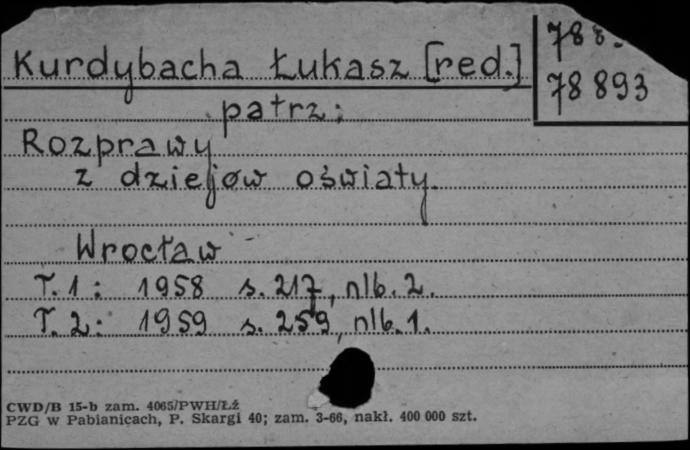 Kurdybacha Łukasz [red.]
78 893
patrz:
Rozprawy
z dziejów oświaty.
Wrocław
T. 1: 1958 s. 217, nlb. 2.
T. 2: 1959 s. 259, nlb. 1.
CWD/B 15-b zam. 4065/PWH/Łź
PZG w Pabianicach, P. Skargi 40; zam. 3-66, nakł. 400 000 szt.